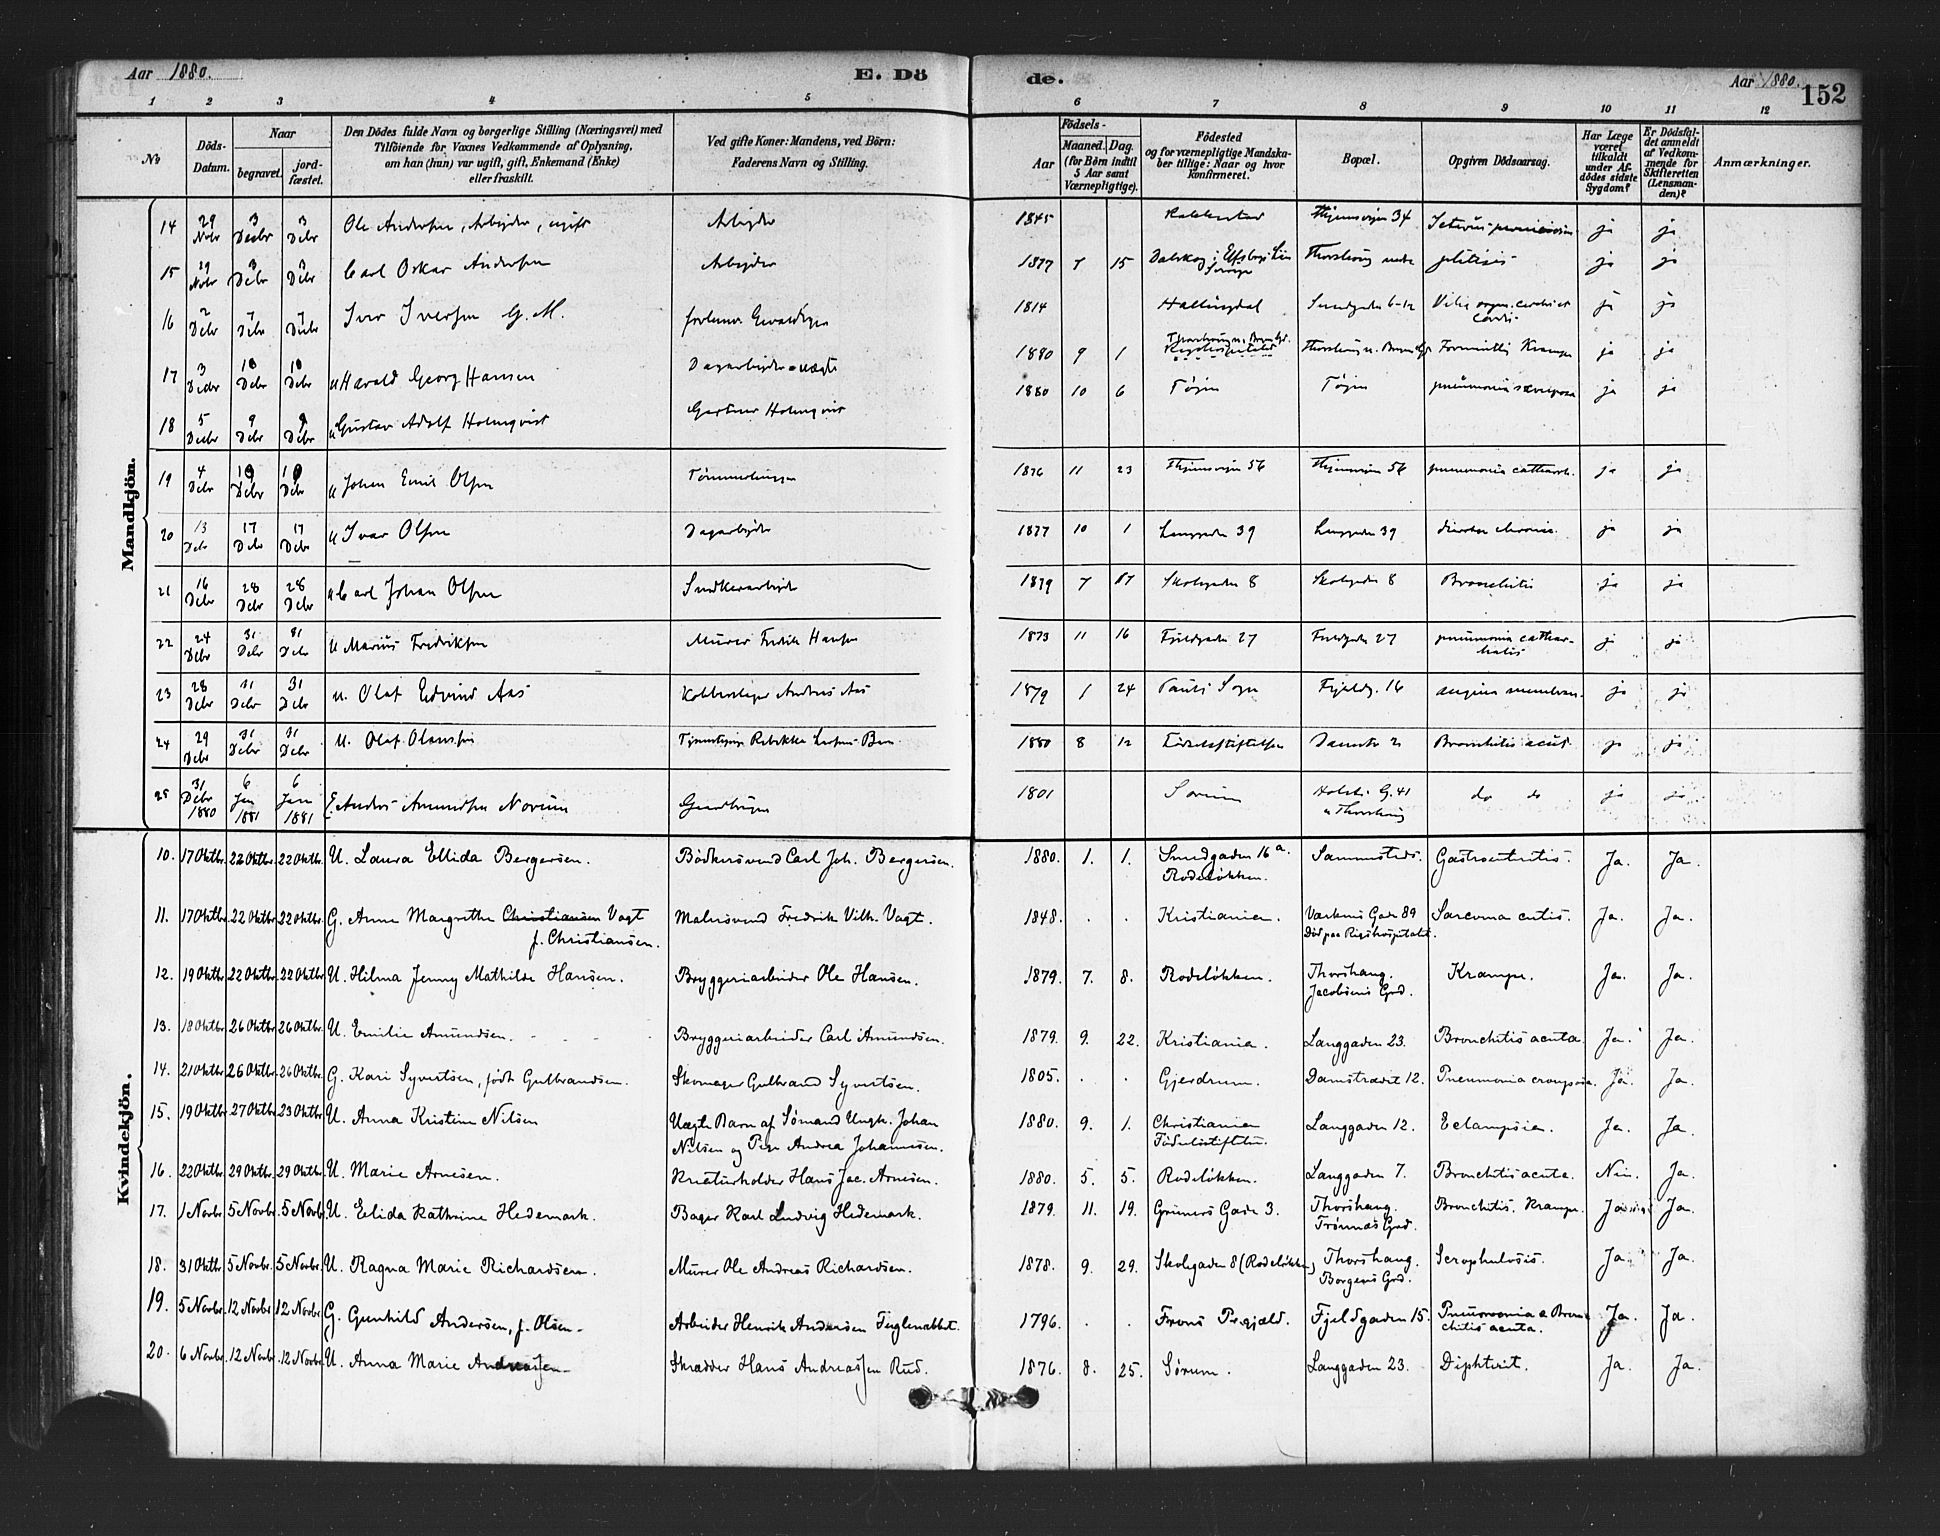 Aar 1880.
E. Dö
de.
Aar 1880.
152
1 2 3 4 5 6 7 8 9 10 11 12
No
Döds-Datum.
Naar
begravet.
jord-fæstet.
Den Dödes fulde Navn og borgerlige Stilling (Næringsvei) med
Tilföiende for Voxnes Vedkommende af Oplysning,
om han (hun) var ugift, gift, Enkemand (Enke)
eller fraskilt.
Ved gifte Koner: Mandens, ved Börn:
Faderens Navn og Stilling.
Födsels-
Aar
Maaned. Dag.
(for Börn indtil
5 Aar samt
Værnepligtige).
Födested
og for værnepligtige Mandska-
ber tillige: Naar og hvor
konfirmeret.
Bopæl.
Opgiven Dödsaarsag.
Har Læge
været
tilkaldt
under Af-
dödes sidste
Sygdom?
Er Dödsfal-
det anmeldt
af Vedkom-
mende for
Skifteretten
(Lensman-
den)?
Anmærkninger.
Mandkjön.
14 29 Nobr 3 Decbr 3 Debr Ole Andersen, Arbeider, ugift Arbeider 1845 34 ja ja
15 29 Nobr 3 Debr 3 Debr Carl Oskar Andersen Arbeider 1877 7 15 ja ja
16 2 Debr 7 Debr 7 Debr Iver Iversen G. M. 1814 Hallingdal ja ja
17 3 Decbr 10 Debr 10 Debr u Harald Georg Hansen Dagarbeider 1880 9 1 ja ja
18 5 Decbr 9 Debr 9 Debr u Gustav Adolf Holmqvist Gartner Holmqvist 1880 10 6 Tøjen Tøjen ja ja
19 4 Debr 10 Debr 10 Debr u Johan Emil Olsen 1876 11 23 56 56 pneumonia catharrh. ja ja
20 13 Debr 17 Debr 17 Debr u Ivar Olsen Dagarbeider 1877 10 1 Langgaden 39 Langgaden 39 ja ja
21 16 Debr 28 Debr 28 Debr u Carl Johan Olsen 1879 7 17 Skolegaden 8 Skolegaden 8 Bronchitis ja ja
22 24 Debr 31 Debr 31 Debr u Marius Fredriksen Murer Fredrik Hansen 1873 11 16 Fjeldgaden 27 Fjeldgaden 27 pneumonia cathar-
halis ja ja
23 28 Debr 31 Debr 31 Debr u. Olaf Edvind Aas Andreas Aas 1879 1 24 Pauls Sogn Fjeldg. 16 angina membran. ja ja
24 29 Debr 31 Debr 31 Debr u. Olaf Olausen 1880 8 12 Fødselsstiftelsen Damstr 2 Bronchitis acut. ja ja
25 31 Debr 1880 6 Jan 1881 6 Jan 1881 E Anders Amundsen Norum Gaardbruger 1801 Sørum G. 41 do do ja ja
Kvindekjön.
10. 17 Oktbr. 22 Oktbr. 22 Oktbr. U. Laura Ellida Bergersen. Bödkersvend Carl Joh. Bergersen. 1880. 1. 1. Smedgaden 16 a.
Rodeløkken. Sammesteds. Gastroenteritis. Ja. Ja.
11. 17 Oktbr. 22 Oktbr. 22 Oktbr. G. Anne Margrethe Christiansen Vogt
f. Christiansen. Malersvend Fredrik Vilh. Vogt. 1848. . . Kristiania. Gade 89
Död paa Rigshospitalet. Sarcoma cutis. Ja. Ja.
12. 19 Oktbr. 22 Oktbr. 22 Oktbr. U. Hilma Jenny Mathilde Hansen. Bryggeriarbeider Ole Hansen. 1879. 7. 8. Rodeløkken. Thorshaug.
Jacobsens Grd. Krampe. Ja. Ja.
13. 18 Oktbr. 26 Oktbr. 26 Oktbr. U. Emilie Amundsen. Bryggeriarbeider Carl Amundsen. 1879. 9. 22. Kristiania. Langgaden 23. Bronchitis acuta. Ja. Ja.
14. 21 Oktbr. 26 Oktbr. 26 Oktbr. G. Kari Syvertsen, født Gulbrandsen. Skomager Gulbrand Syvertsen. 1805. . . Gjerdrum. Damstrædet 12. Pneumonia crouposa. Ja. Ja.
15. 19 Oktbr. 27 Oktbr. 23 Oktbr. U. Anna Kristine Nilsen Uægte Barn af Sømand Ungk. Johan
Nilsen og Pige Andrea Johannesen. 1880. 9. 1. Christiania
Födselsstiftelsen. Langgaden 12. Eclampsia. Ja. Ja.
16. 22 Oktbr. 29 Oktbr. 29 Oktbr. U. Marie Arnesen. Kreaturholder Hans Jac. Arnesen. 1880. 5. 5. Rodeløkken. Langgaden 7. Bronchitis acuta. Nei. Ja.
17. 1 Novbr. 5 Novbr. 5 Novbr. U. Elida Kathrine Hedemark. Bager Karl Ludvig Hedemark. 1879. 11. 19. Grüners Gade 3. Thorshaug.
Trønnæs Grd. Bronchitis. Krampe. Ja Ja.
18. 31 Oktbr 5 Novbr. 5 Novbr. U. Ragna Marie Richardsen. Murer Ole Andreas Richardsen. 1878. 9. 29. Skolegaden 8 (Rodeløkken) Thorshaug.
Borgens Grd. Scrophulosis. Ja. Ja.
19. 5 Novbr. 12 Novbr. 12 Novbr. G. Gunhild Andersen, f. Olsen. Arbeider Henrik Andersen Teglenabbet. 1796. . . Frons Prgjæld. Fjeldgaden 15. Pneumonia a Bron-
chitis acuta. Ja. Ja.
20. 6 Novbr. 12 Novbr. 12 Novbr. U. Anna Marie Andreassen Skrædder Hans Andreassen Rud. 1876. 8. 25. Sørum. Langgaden 23. Diphterit. Ja. Ja.